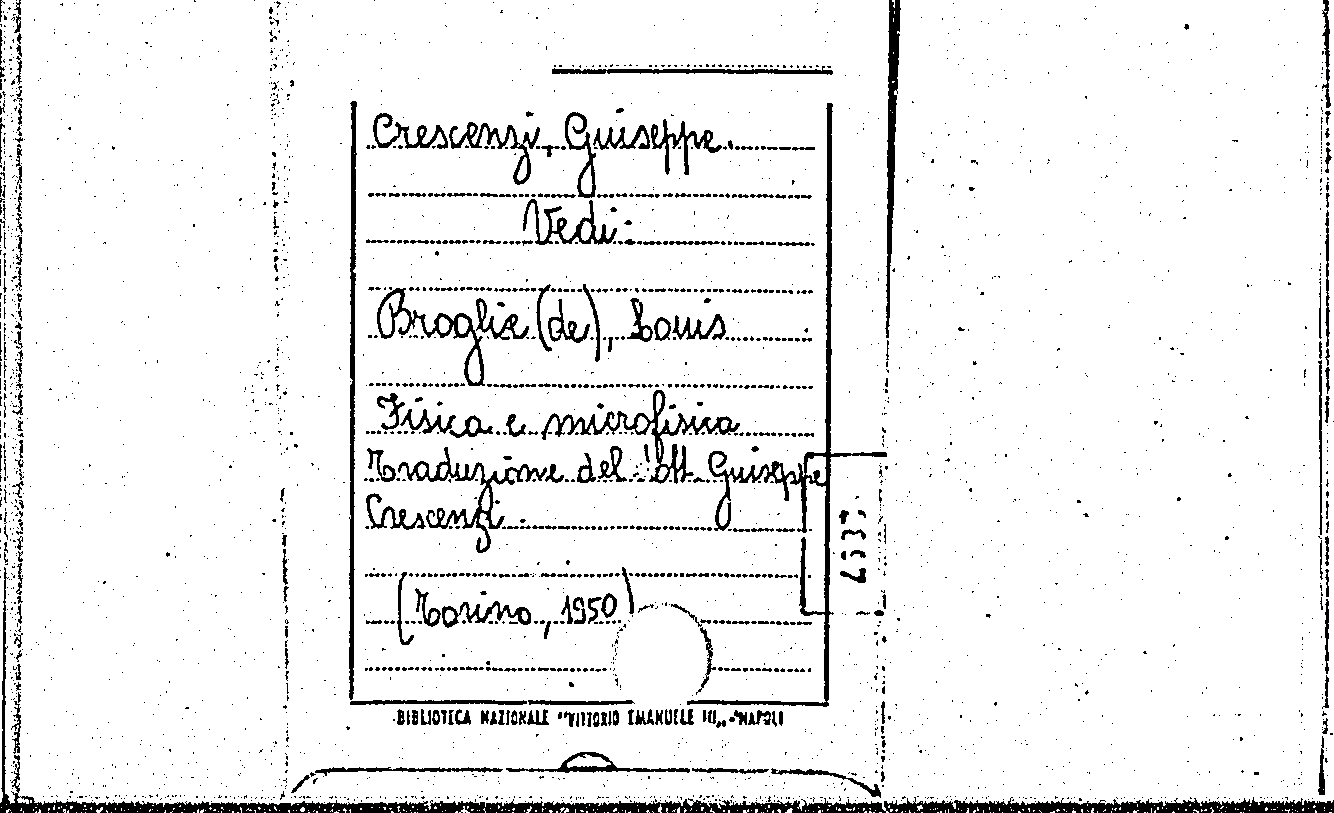 Crescenzi, Giuseppe.
Vedi:
Broglie (de), Louis
Fisica e microfisica
Traduzione del dott. Giuseppe
Crescenzi.
(Torino, 1950)
BIBLIOTECA NAZIONALE "VITTORIO EMANUELE III„ - NAPOLI